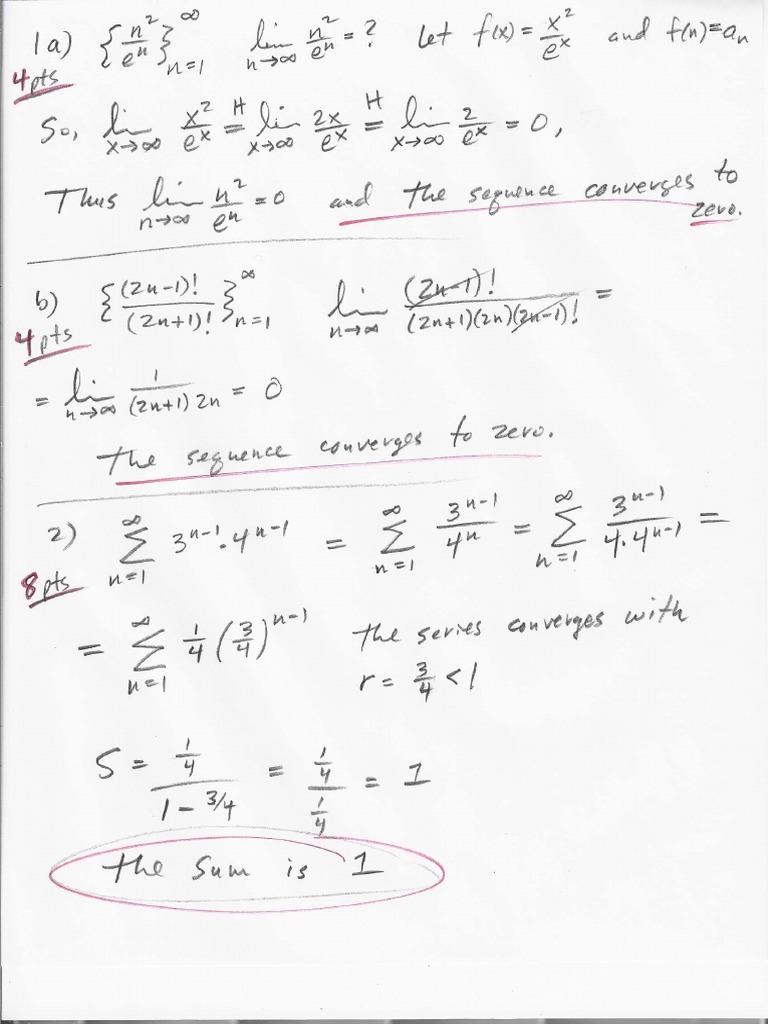 1a) {n²/eⁿ}_{n=1}^∞ lim_{n→∞} n²/eⁿ = ? Let f(x) = x²/eˣ and f(n) = aₙ
4pts
So, lim_{x→∞} x²/eˣ =^H lim_{x→∞} 2x/eˣ =^H lim_{x→∞} 2/eˣ = 0,
Thus lim_{n→∞} n²/eⁿ = 0 and the sequence converges to
zero.
b) {(2n-1)!/(2n+1)!}_{n=1}^∞ lim_{n→∞} (2n-1)!/((2n+1)(2n)(2n-1)!) =
4pts
= lim_{n→∞} 1/((2n+1)2n) = 0
The sequence converges to zero.
2) ∑_{n=1}^∞ 3^{n-1}·4^{n-1} = ∑_{n=1}^∞ 3^{n-1}/4ⁿ = ∑_{n=1}^∞ 3^{n-1}/(4·4^{n-1}) =
8pts
= ∑_{n=1}^∞ 1/4 (3/4)^{n-1} the series converges with
r = 3/4 < 1
S = (1/4)/(1 - 3/4) = (1/4)/(1/4) = 1
the sum is 1